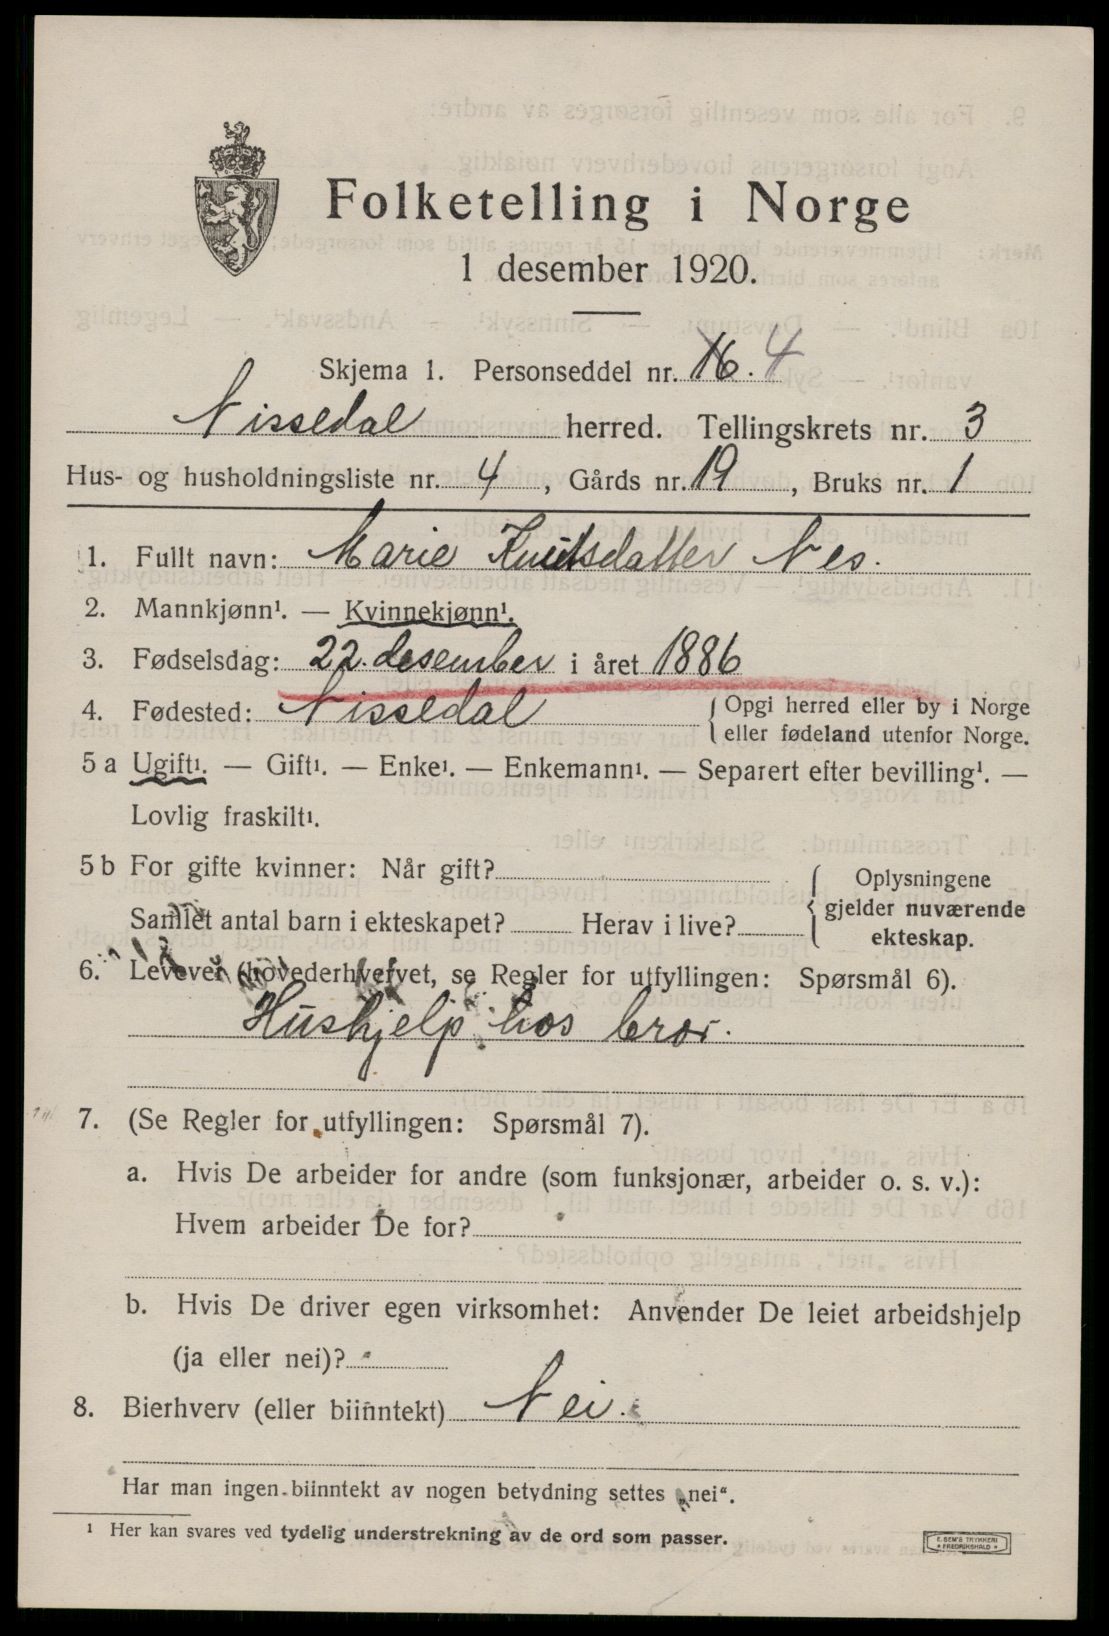 Folketelling i Norge
1 desember 1920.
Skjema 1. Personseddel nr. 16. 4
Nissedal herred. Tellingskrets nr. 3
Hus- og husholdningsliste nr. 4, Gårds nr. 19, Bruks nr. 1
1. Fullt navn: Marie Knutsdatter Nes.
2. Mannkjønn¹. — Kvinnekjønn¹.
3. Fødselsdag: 22. desember i året 1886
4. Fødested: Nissedal { Opgi herred eller by i Norge
eller fødeland utenfor Norge.
5 a Ugift¹. — Gift¹. — Enke¹. — Enkemann¹. — Separert efter bevilling¹. —
Lovlig fraskilt¹.
5 b For gifte kvinner: Når gift? { Oplysningene
gjelder nuværende
ekteskap.
Samlet antal barn i ekteskapet? Herav i live?
6. Levevei (hovederhvervet, se Regler for utfyllingen: Spørsmål 6).
Hushjelp hos bror.
7. (Se Regler for utfyllingen: Spørsmål 7).
a. Hvis De arbeider for andre (som funksjonær, arbeider o. s. v.):
Hvem arbeider De for?
b. Hvis De driver egen virksomhet: Anvender De leiet arbeidshjelp
(ja eller nei)?
8. Bierhverv (eller biinntekt) Nei.
Har man ingen biinntekt av nogen betydning settes „nei“.
¹ Her kan svares ved tydelig understrekning av de ord som passer.
E. SEM'S TRYKKERI
* FREDRIKSHALD *